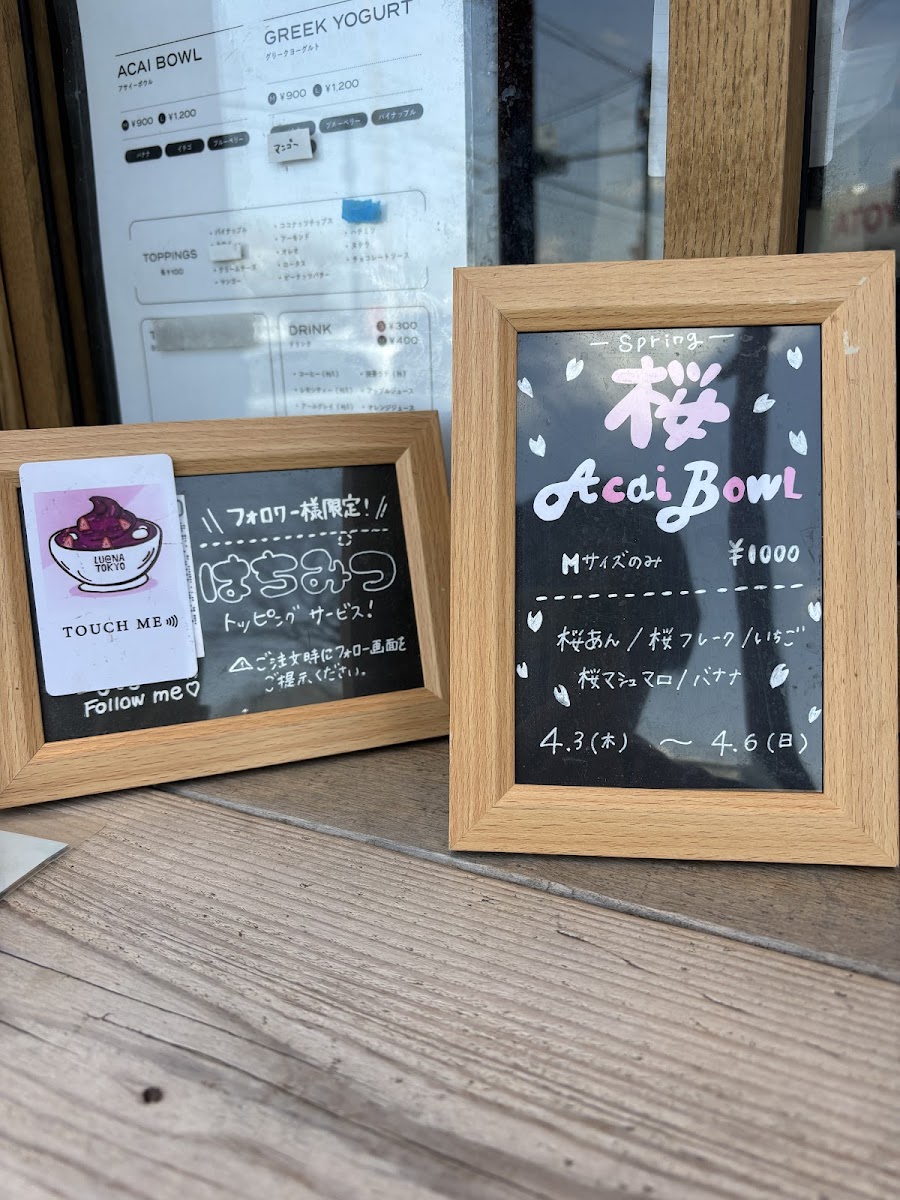 ACAI BOWL
アサイーボウル
M ¥900 L ¥1,200
バナナ イチゴ ブルーベリー
GREEK YOGURT
グリークヨーグルト
M ¥900 L ¥1,200
ブルーベリー パイナップル
マンゴー
TOPPINGS
各¥100
・パイナップル
・クリームチーズ
・マンゴー
・ココナッツチップス
・アーモンド
・オレオ
・ロータス
・ピーナッツバター
・ハチミツ
・ヌテラ
・チョコレートソース
DRINK
ドリンク
S ¥300
M ¥400
・コーヒー (H/I)
・レモンティー (H/I)
・アールグレイ (H/I)
・アップルジュース
・オレンジジュース
LUONA
TOKYO
TOUCH ME
Follow me♡
\\ フォロワー様限定! //
はちみつ
トッピング サービス!
⚠ご注文時にフォロー画面を
ご提示ください。
— Spring —
桜
Acai Bowl
Mサイズのみ ¥1000
桜あん/桜フレーク/いちご
桜マシュマロ/バナナ
4.3(木) 〜 4.6(日)